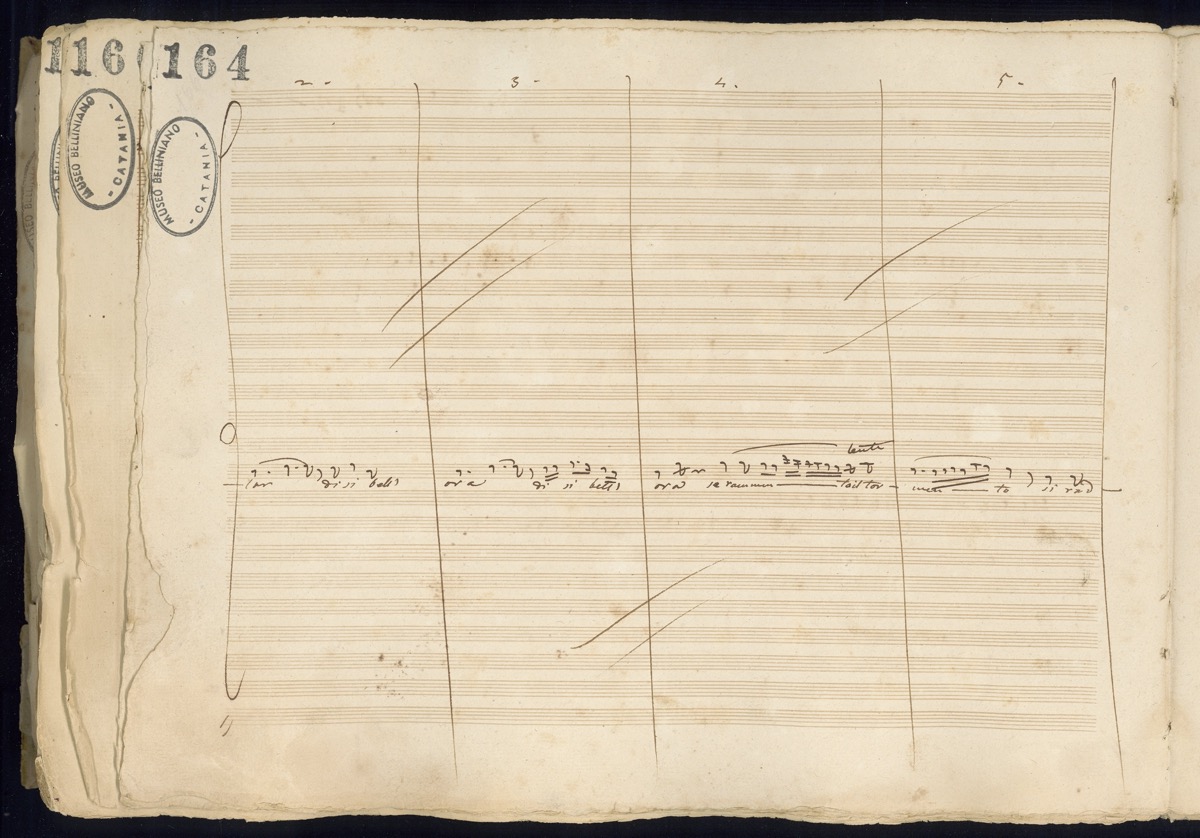 116
164
MUSEO BELLINIANO
- CATANIA -
MUSEO BELLINIANO
- CATANIA -
2 - 3 - 4. 5 -
di si bell' ora di si bell' ora se rammen to il tor men to si rad